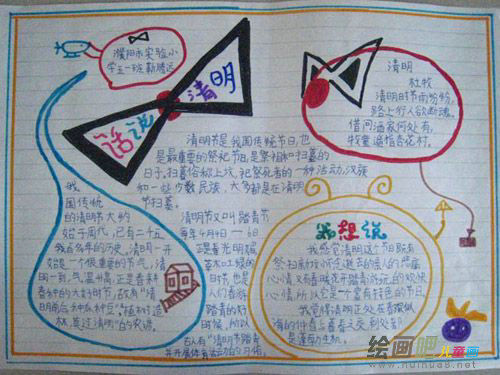 濮阳市实验小
学五一班靳腾远
话说清明
清明
杜牧
清明时节雨纷纷,
路上行人欲断魂。
借问酒家何处有,
牧童遥指杏花村。
清明节是我国传统节日,也
是最重要的祭祀节日,是祭祖和扫墓的
日子。扫墓俗称上坟,祀祭死者的一种活动,汉族
和一些少数民族,大多都是在清明
节扫墓。
我
国传统
的清明节大约
始于周代,已有二千五
百多年的历史。清明一开
始是一个很重要的节气,清
明一到,气温升高,正是春耕
春种的大好时节,故有“清
明前后,种瓜种豆”。“植树造
林,莫过清明”的农谚。
清明节又叫踏青节
每年4月4日—6日
正是春光明媚
草木吐绿的
时节,也是
人们春游
踏青的好
时候,所以
古人有“清明节踏青
并开展体育活动的习俗。
我想说
我感觉清明这个节日既有
祭扫新坟怀念逝去的亲人的
心情,又有春暖花开踏青游玩的欢快
心情,所以它是一个富有特色的节日。
我觉得清明正处在春深似
绘画吧儿童画
www.huihua8.net